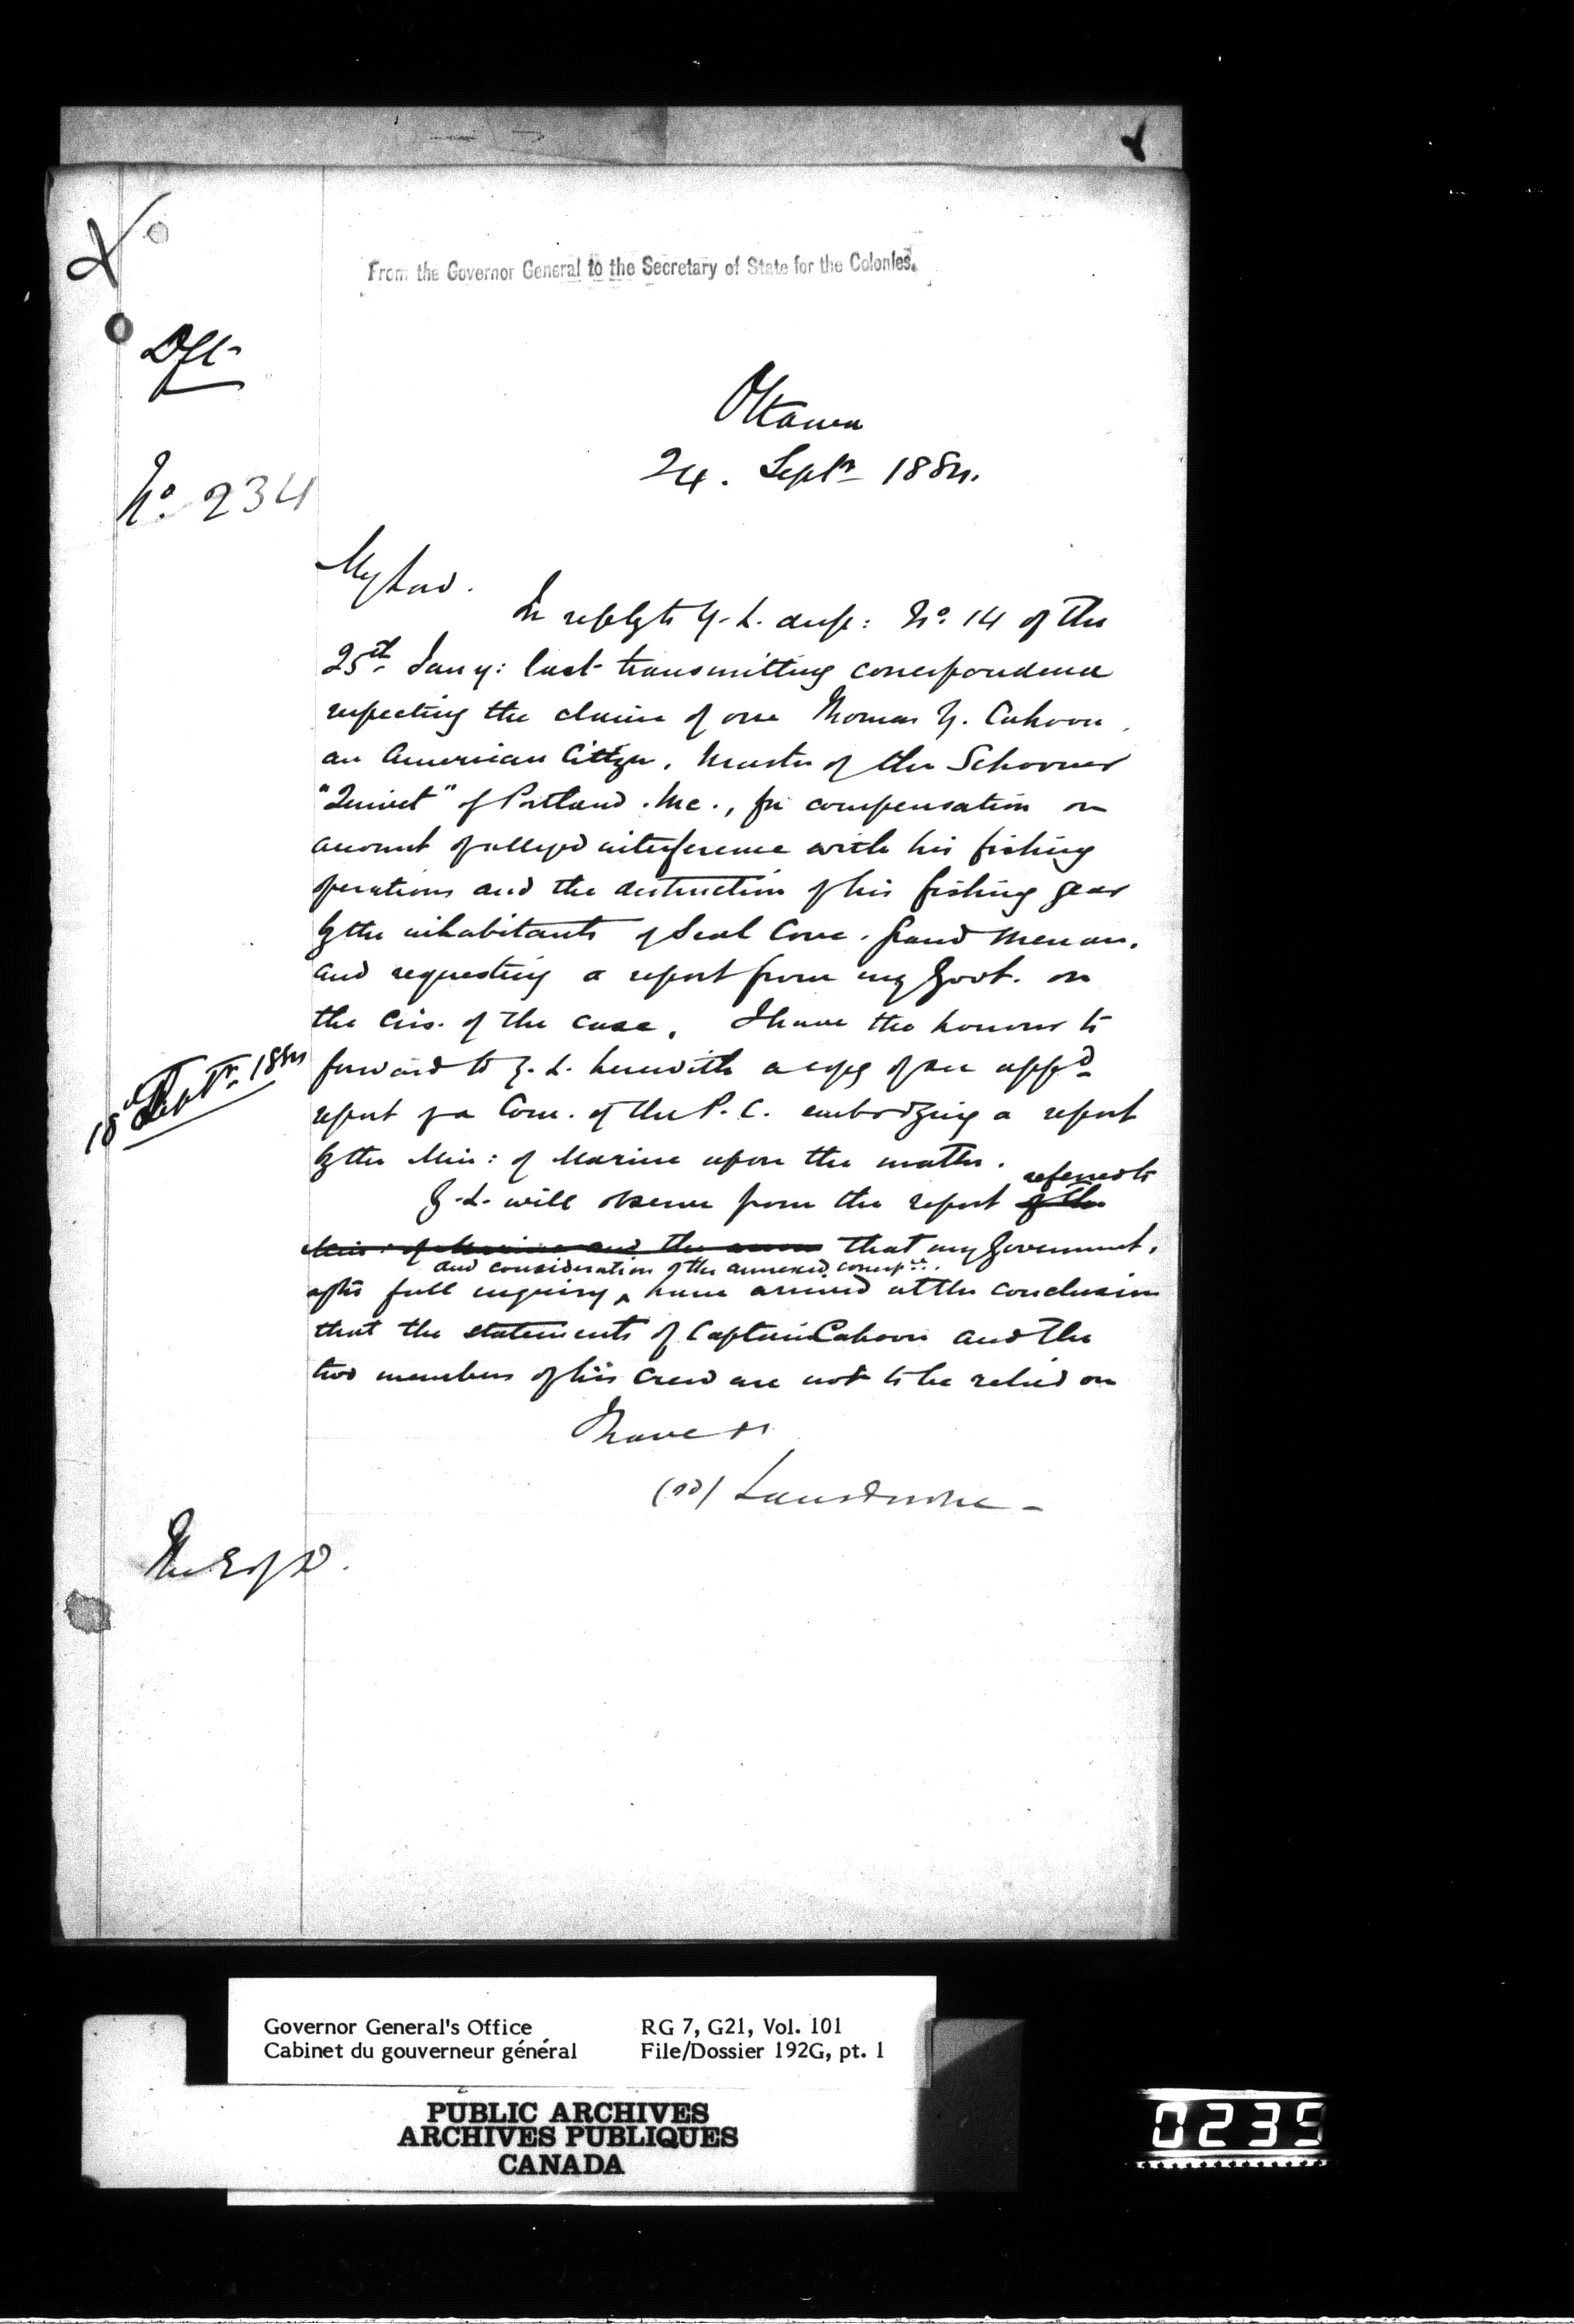 From the Governor General to the Secretary of State for the Colonies.
Dft
Ottawa
24. Septr 1884.
No. 234
My Lord.
In reply to Y.L. desp: No. 14 of the
25th Jany: last transmitting correspondence
respecting the claim of one Thomas Y. Cahoon,
an American Citizen, Master of the Schooner
" " of Portland. Me., for compensation on
account of alleged interference with his fishing
operations and the destruction of his fishing gear
by the inhabitants of Seal Cove. Grand Menan.
and requesting a report from my Govt. on
the Circs. of the case. I have the honour to
forward to Y.L. herewith a copy of an appd
18th Septr. 1884
report of a Com. of the P.C. embodying a report
by the Min: of Marine upon the matter.
Y.L. will observe from the report of the referred to
Min: of Marine and the that my Government,
and consideration of the annexed corresp:
after full inquiry ^ have arrived at the conclusion
that the statements of Captain Cahoon and the
two members of his crew are not to be relied on
I have &c
(sd) Lansdowne -
The E of D.
Governor General's Office
Cabinet du gouverneur général
RG 7, G21, Vol. 101
File/Dossier 192G, pt. 1
PUBLIC ARCHIVES
ARCHIVES PUBLIQUES
CANADA
0235